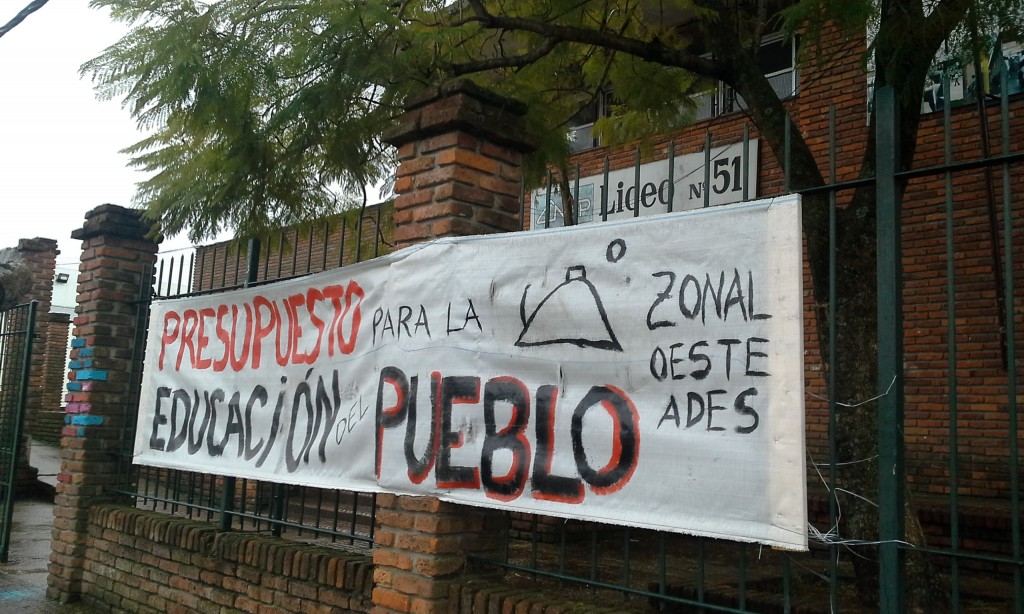 Liceo Nº 51
PRESUPUESTO PARA LA
EDUCACIÓN DEL PUEBLO
ZONAL
OESTE
ADES